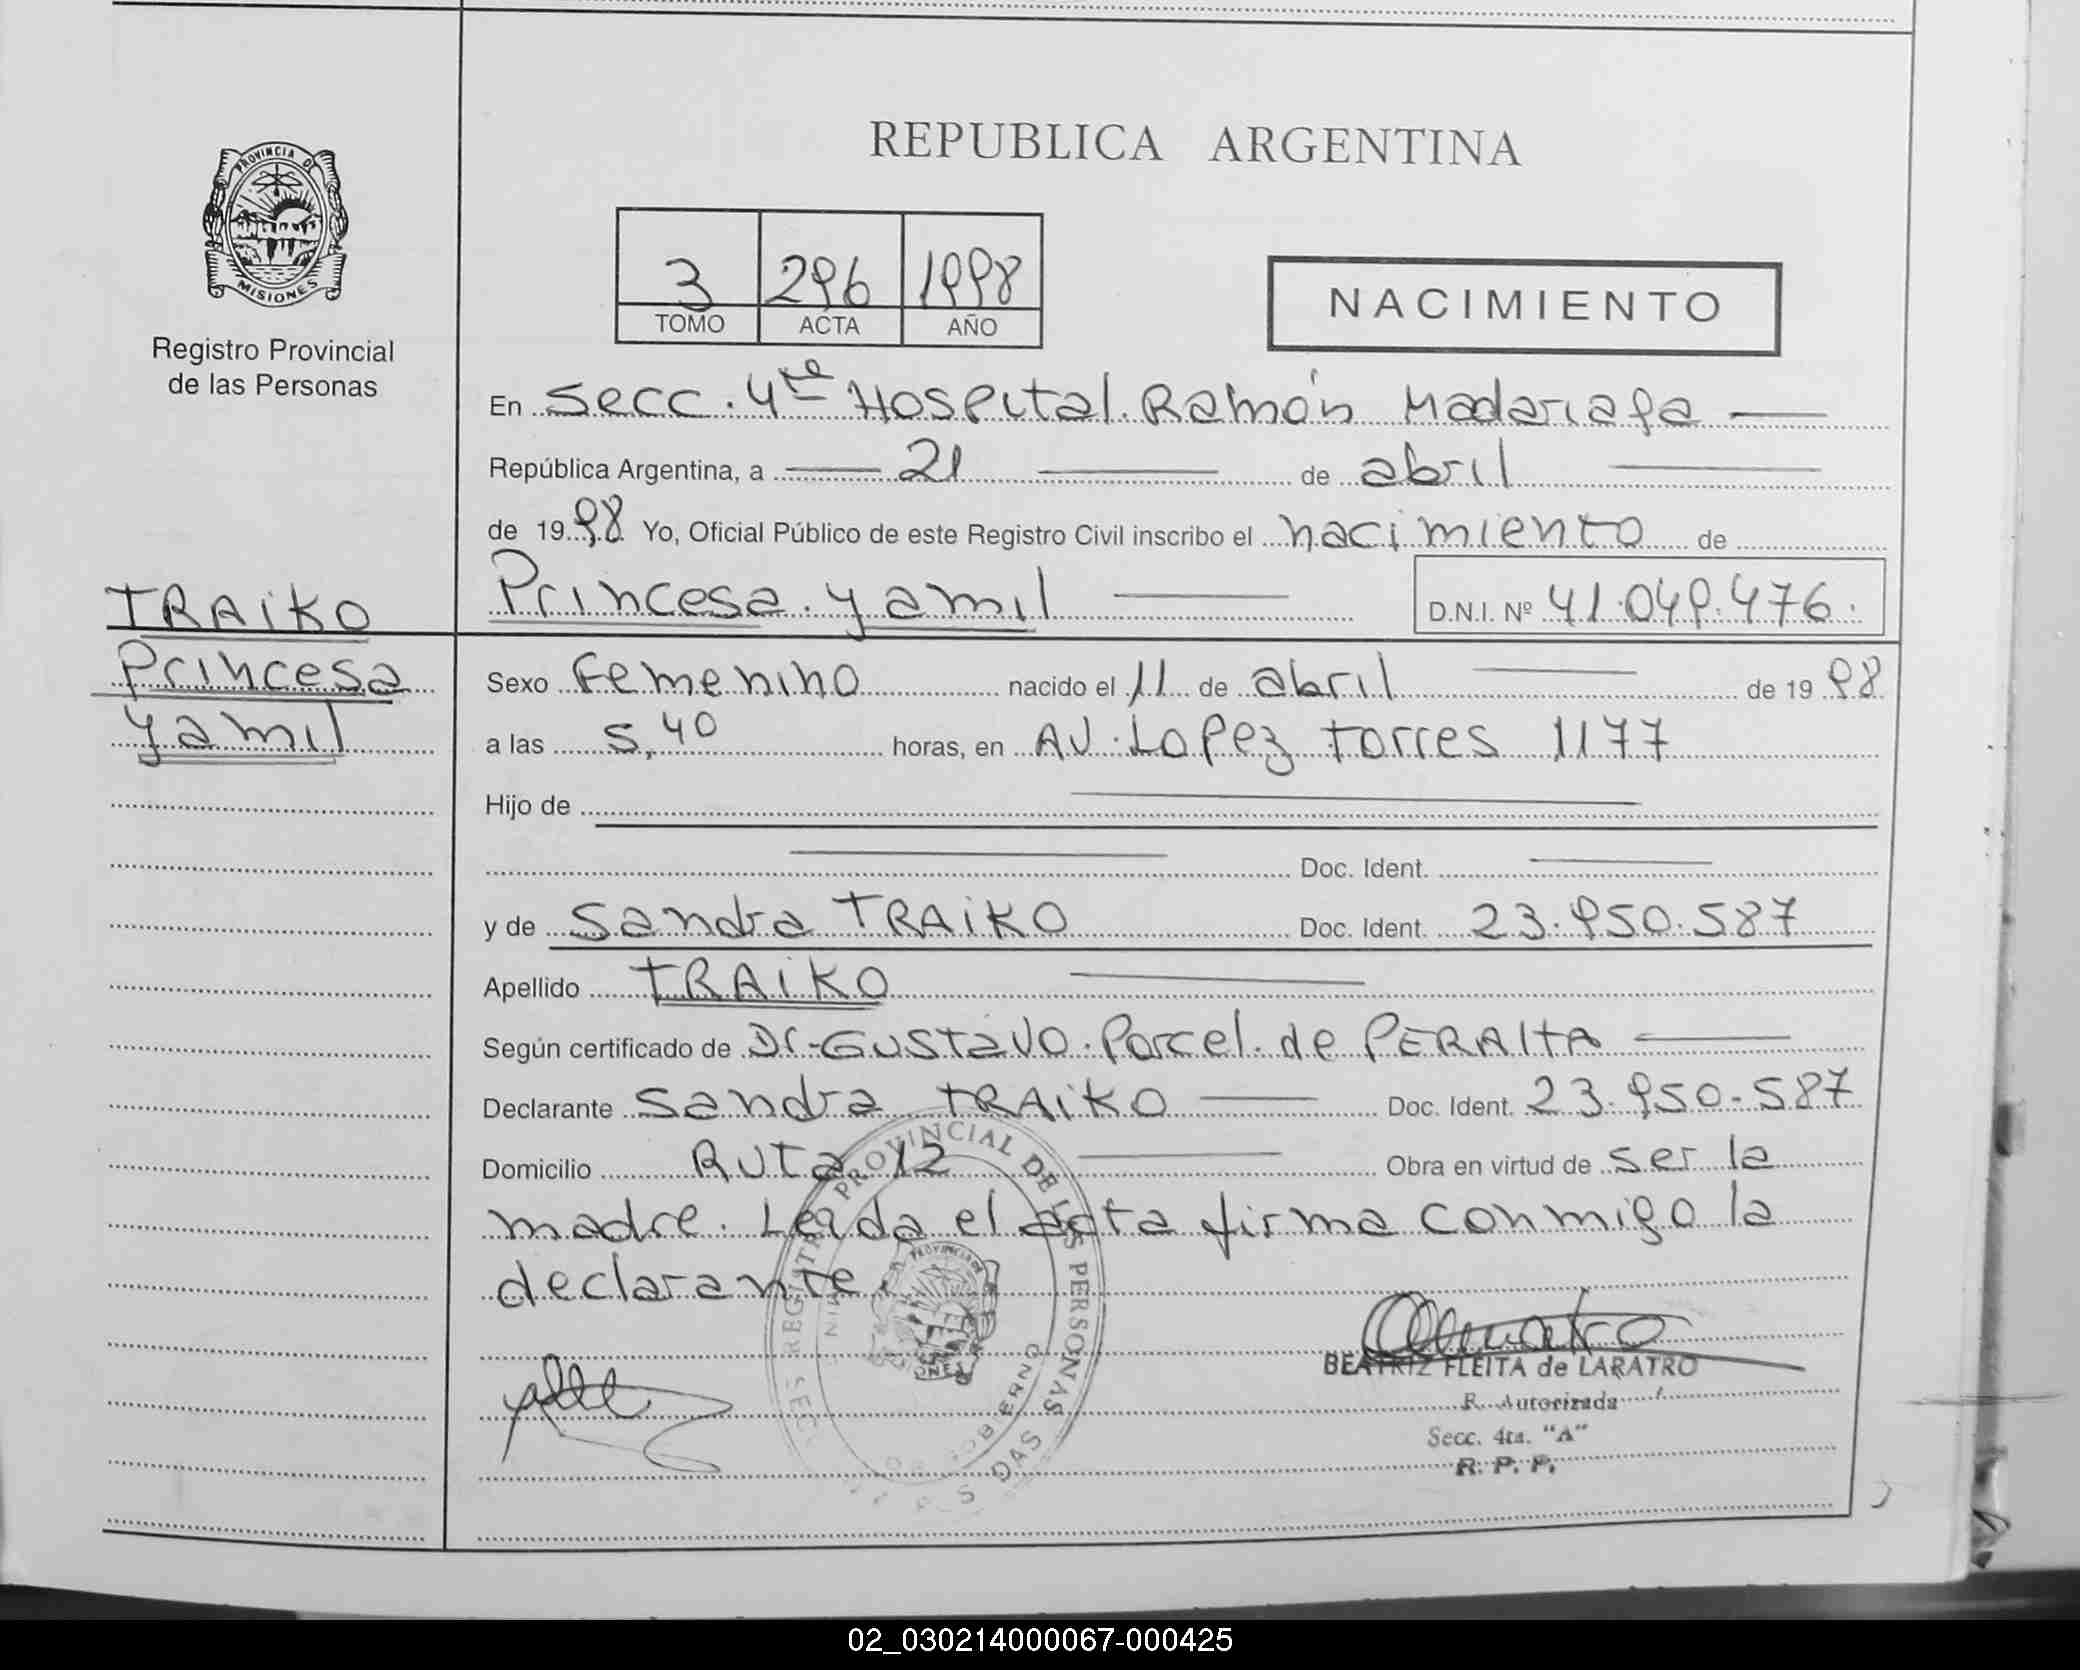 REPUBLICA ARGENTINA
PROVINCIA DE
MISIONES
Registro Provincial
de las Personas
3 296 1998
TOMO ACTA AÑO
NACIMIENTO
En Secc. 4ta Hospital Ramón Madariaga
República Argentina, a 21 de abril
de 1998 Yo, Oficial Público de este Registro Civil inscribo el nacimiento de
Princesa Yamil D.N.I. Nº 41.049.476.
TRAIKO
Princesa
Yamil
Sexo Femenino nacido el 11 de abril de 1998
a las 5,40 horas, en AV. Lopez Torres 1177
Hijo de
Doc. Ident.
y de Sandra TRAIKO Doc. Ident. 23.950.587
Apellido TRAIKO
Según certificado de Dr. GUSTAVO Porcel de PERALTA
Declarante Sandra TRAIKO Doc. Ident. 23.950.587
Domicilio Ruta 12 Obra en virtud de ser la
madre. Leida el acta firma conmigo la
declarante.
PROVINCIAL DE LAS PERSONAS
GOBIERNO
POSADAS
BEATRIZ FLEITA de LARATRO
R. Autorizada
Secc. 4ta. "A"
R. P. P.
02_030214000067-000425